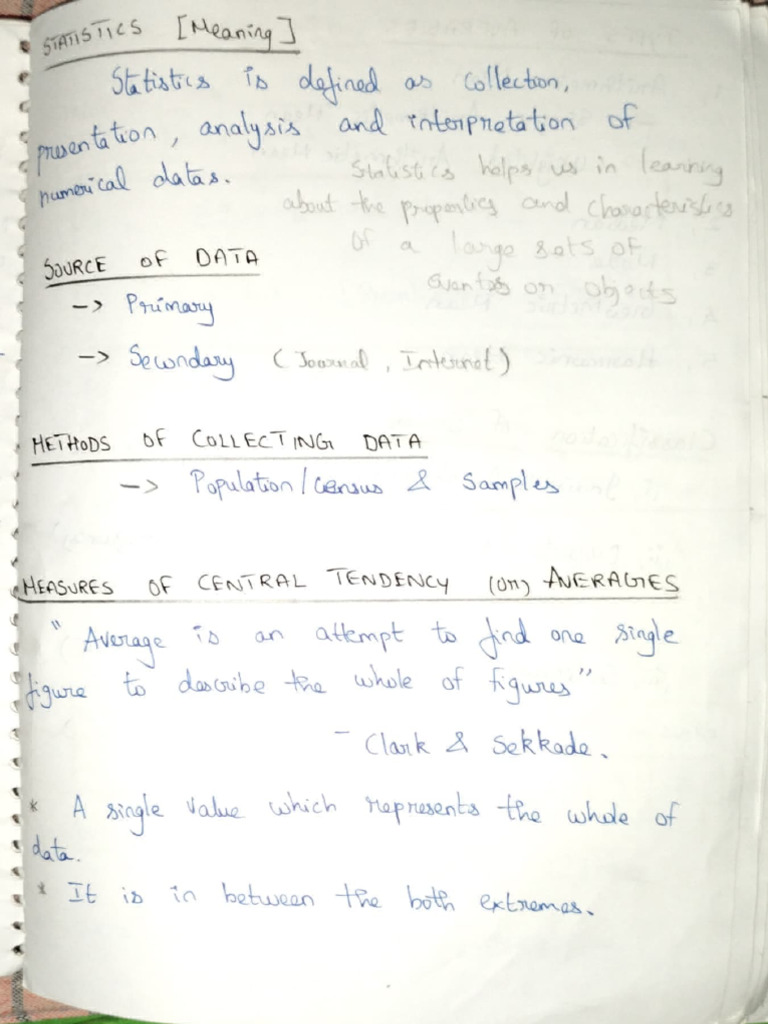 STATISTICS [Meaning]
Statistics is defined as collection,
presentation, analysis and interpretation of
numerical datas.
Statistics helps us in learning
about the properties and characteristics
of a large sets of
events or objects
SOURCE OF DATA
-> Primary
-> Secondary (Journal, Internet)
METHODS OF COLLECTING DATA
-> Population/Census & Samples
MEASURES OF CENTRAL TENDENCY (or) AVERAGES
"Average is an attempt to find one single
figure to describe the whole of figures"
- Clark & Sekkade.
* A single value which represents the whole of
data.
* It is in between the both extremes.